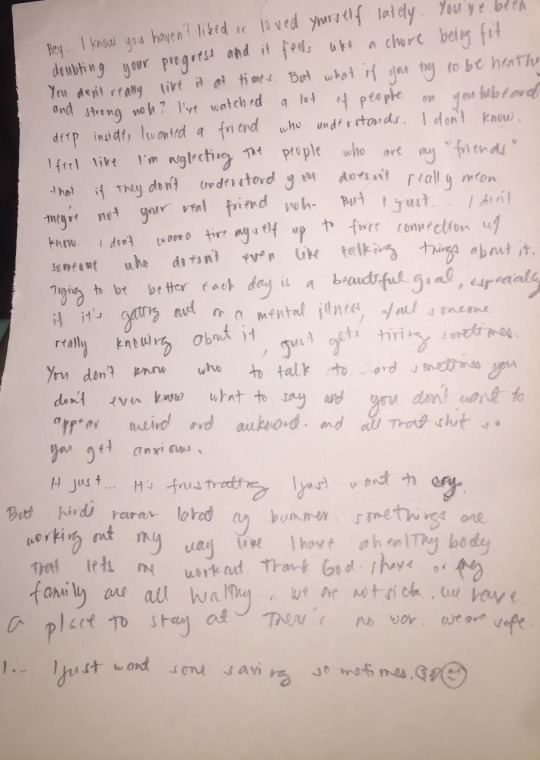 Hey. I know you haven't liked or loved yourself lately. You've been
doubting your progress and it feels like a chore being fit.
You don't really like it at times. But what if you try to be healthy
and strong noh? I've watched a lot of people on youtube and
deep inside, I wanted a friend who understands. I don't know.
I feel like I'm neglecting the people who are my "friends"
that if they don't understand you doesn't really mean
they're not your real friend noh. But I just... I don't
know. I don't wanna tire myself up to force connection w/
someone who doesn't even like talking things about it.
Trying to be better each day is a beautiful goal, especially
if it's getting out on a mental illness, w/out someone
really knowing about it, just gets tiring sometimes.
You don't know who to talk to and sometimes you
don't even know what to say and you don't want to
appear weird and awkward. and all that shit so
you get anxious.
It just... It's frustrating I just want to cry.
But hindi naman lahat ay bummer. somethings are
working out my way like I have a healthy body
that lets me workout. Thank God I have or my
family are all healthy, we are not sick, we have
a place to stay at There's no war. we are safe.
I... I just want some saving sometimes.